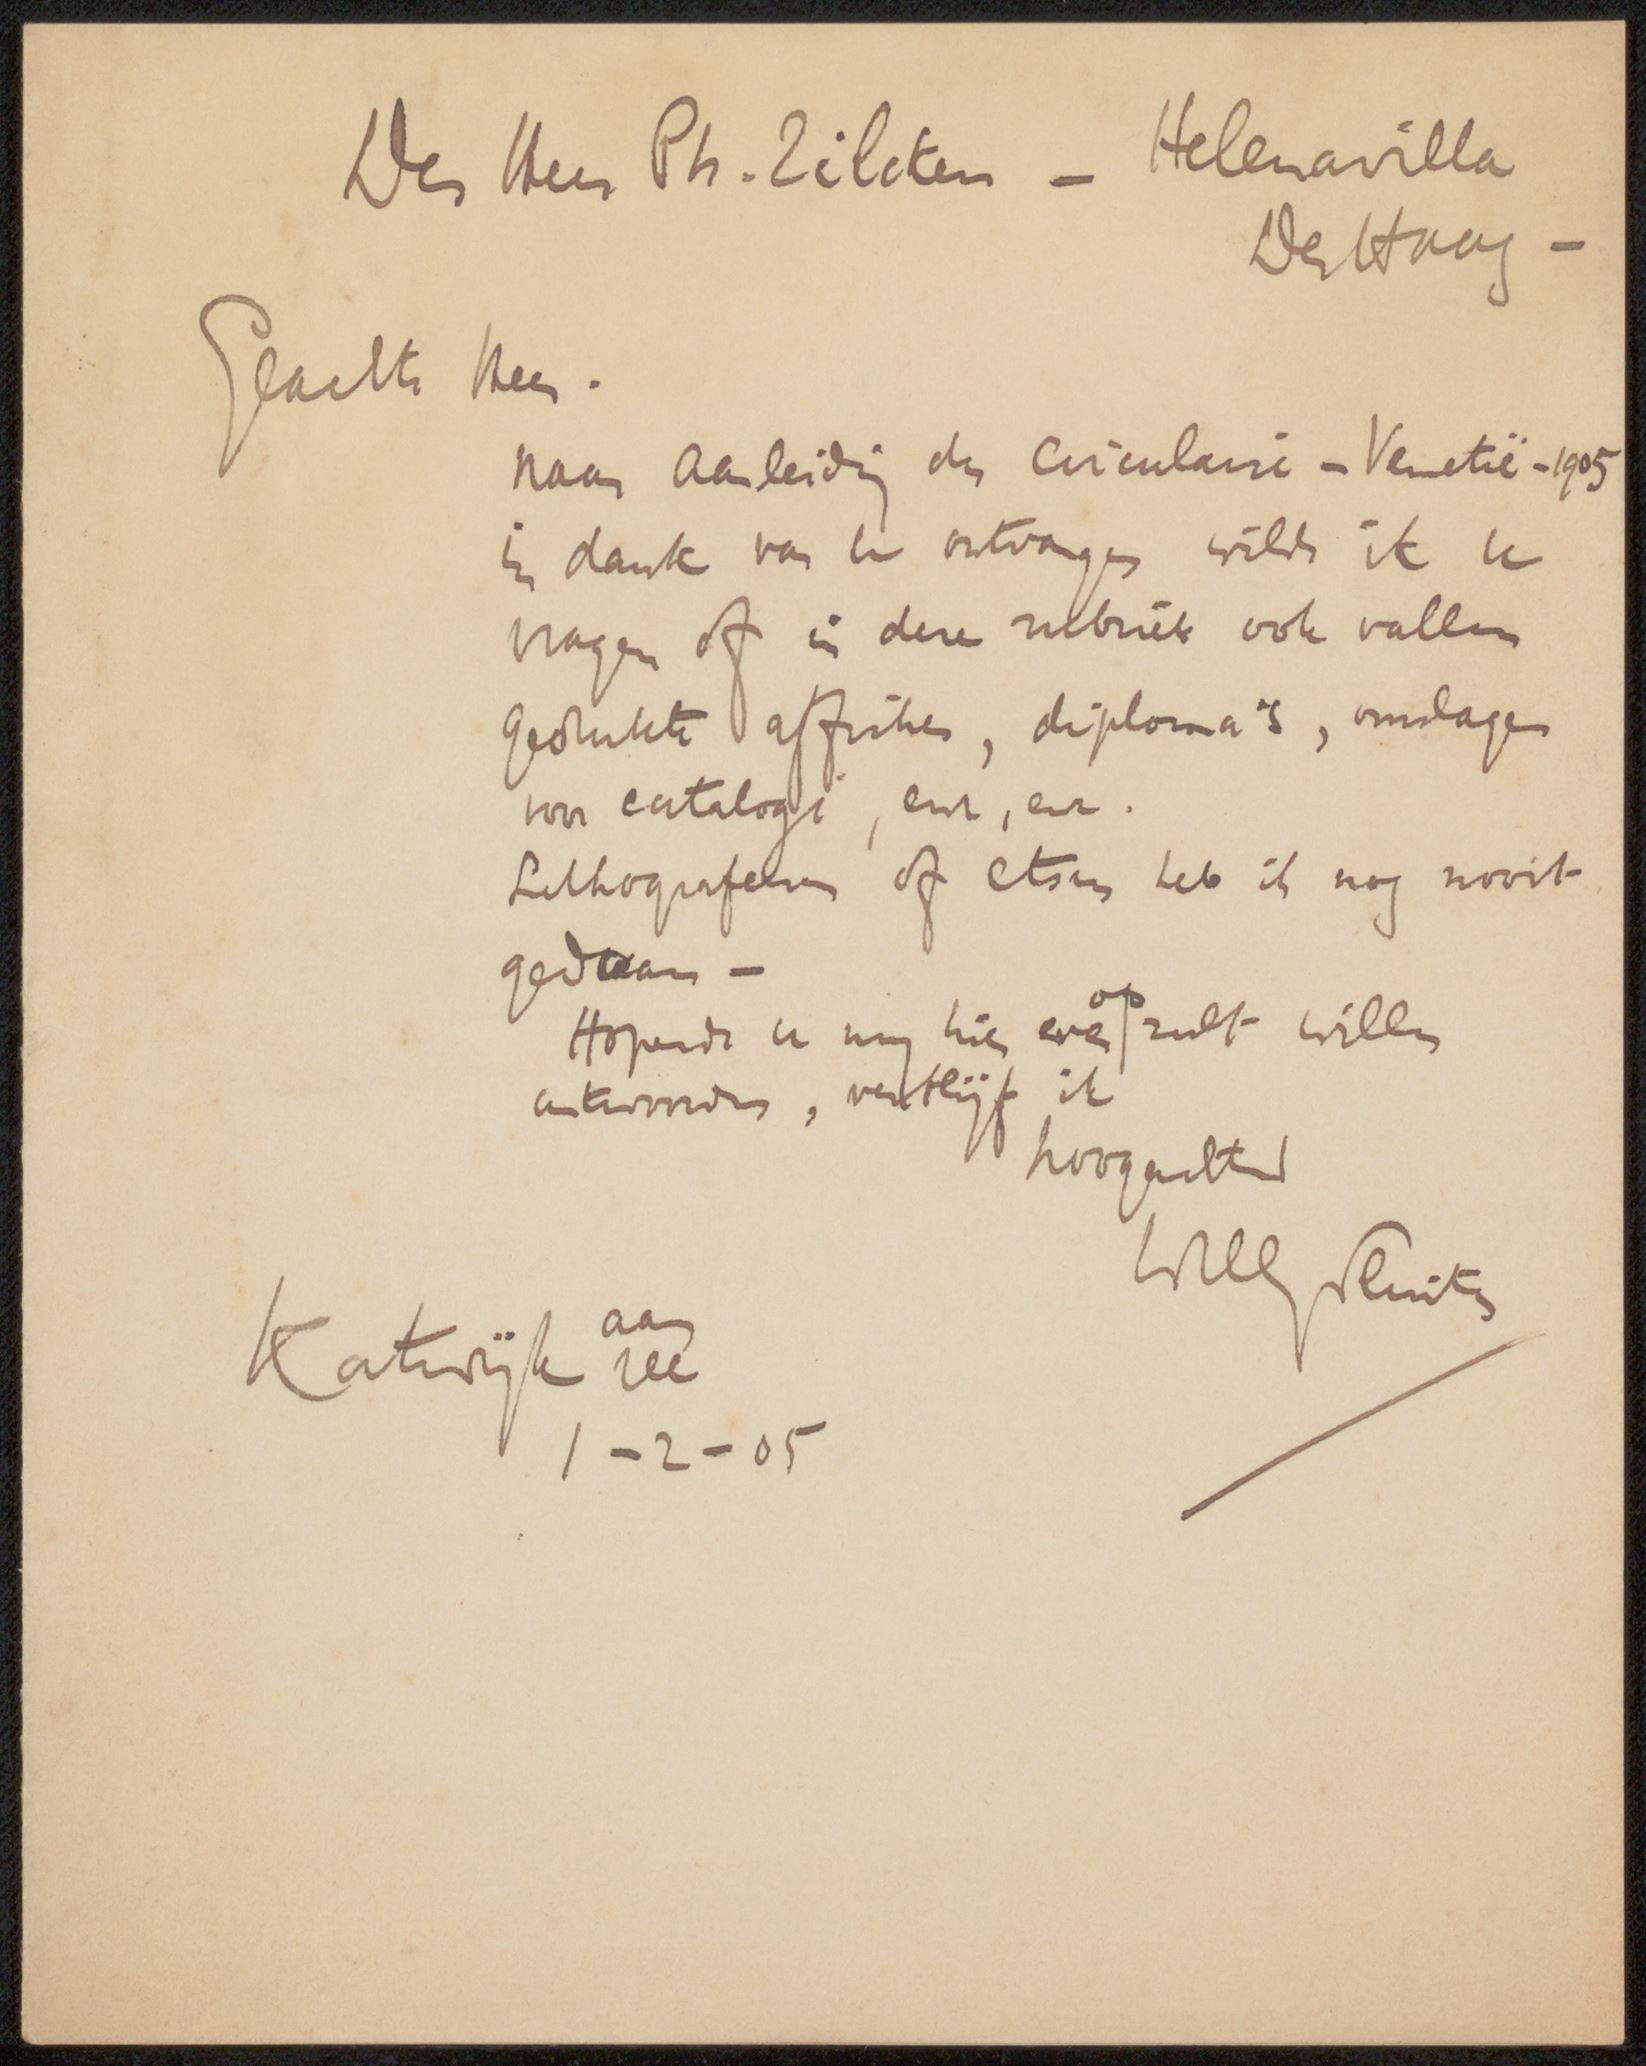 Den Heer Ph. Zilcken – Helenavilla
Den Haag –
Geachte Heer.
naar aanleiding der circulaire – Venetië – 1905
in dank van u ontvangen wilde ik u
vragen of in deze rubriek ook vallen
gedrukte affiches, diploma's, omslagen
voor catalogi, enz, enz.
Lithografeeren of etsen heb ik nog nooit
gedaan –
Hopende u mij hier even op zult willen
antwoorden, verblijf ik
hoogachtend
Willy Sluiter
Katwijk aan
zee
1–2–05